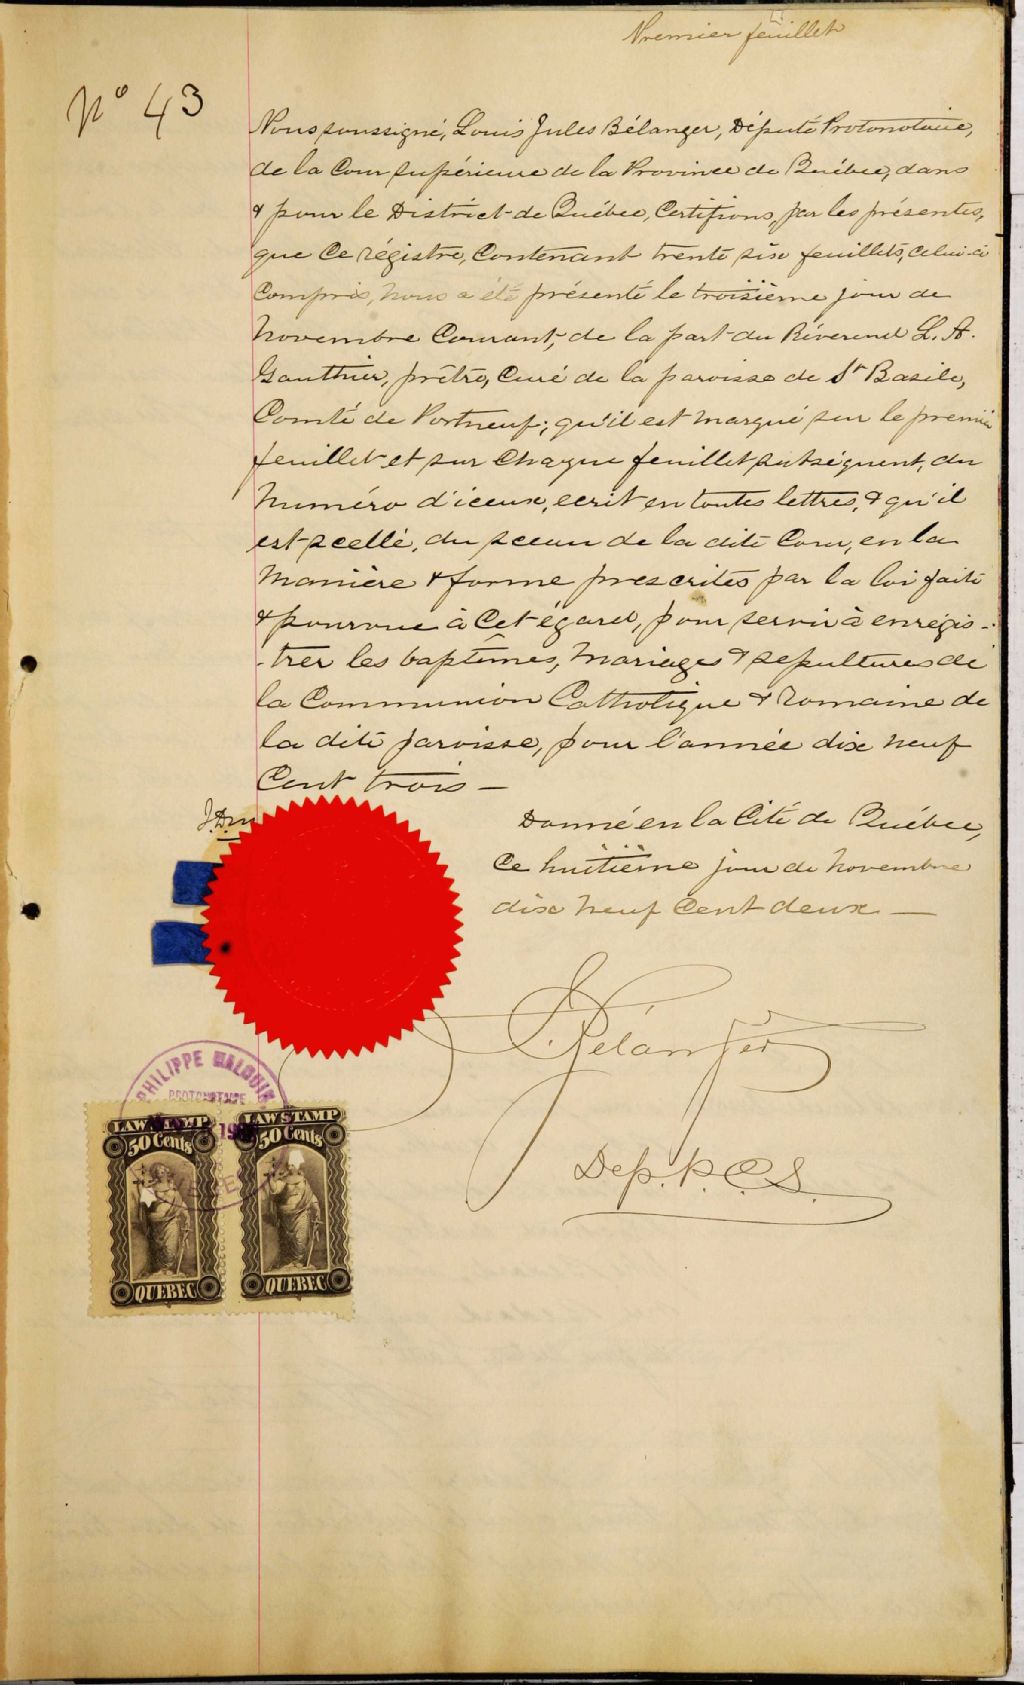 Premier feuillet
No 43
Nous soussigné, Louis Jules Bélanger, Député Protonotaire,
de la Cour Supérieure de la Province de Québec, dans
& pour le District de Québec, Certifions, par les présentes,
que ce régistre, contenant trente six feuillets, celui-ci
compris, nous a été présenté le troisième jour de
Novembre Courant, de la part du Révérend L. A.
Gauthier, prêtre, Curé de la paroisse de St Basile,
Comté de Portneuf; qu'il est marqué sur le premier
feuillet et sur chaque feuillet subséquent, du
numéro d'iceux, écrit en toutes lettres, & qu'il
est scellé, du sceau de la dite Cour, en la
manière & forme prescrites par la loi faite
& pourvue à cet égard, pour servir à enrégis-
-trer les baptêmes, mariages & sépultures de
la Communion Catholique & Romaine de
la dite paroisse, pour l'année dix neuf
Cent trois —
Donné en la Cité de Québec,
ce huitième jour de Novembre
dix neuf Cent deux —
Bélanger
Dep. P. C. S.
PHILIPPE MALOUIN
PROTONOTAIRE
LAW STAMP LAW STAMP
50 Cents 50 Cents
QUEBEC QUEBEC